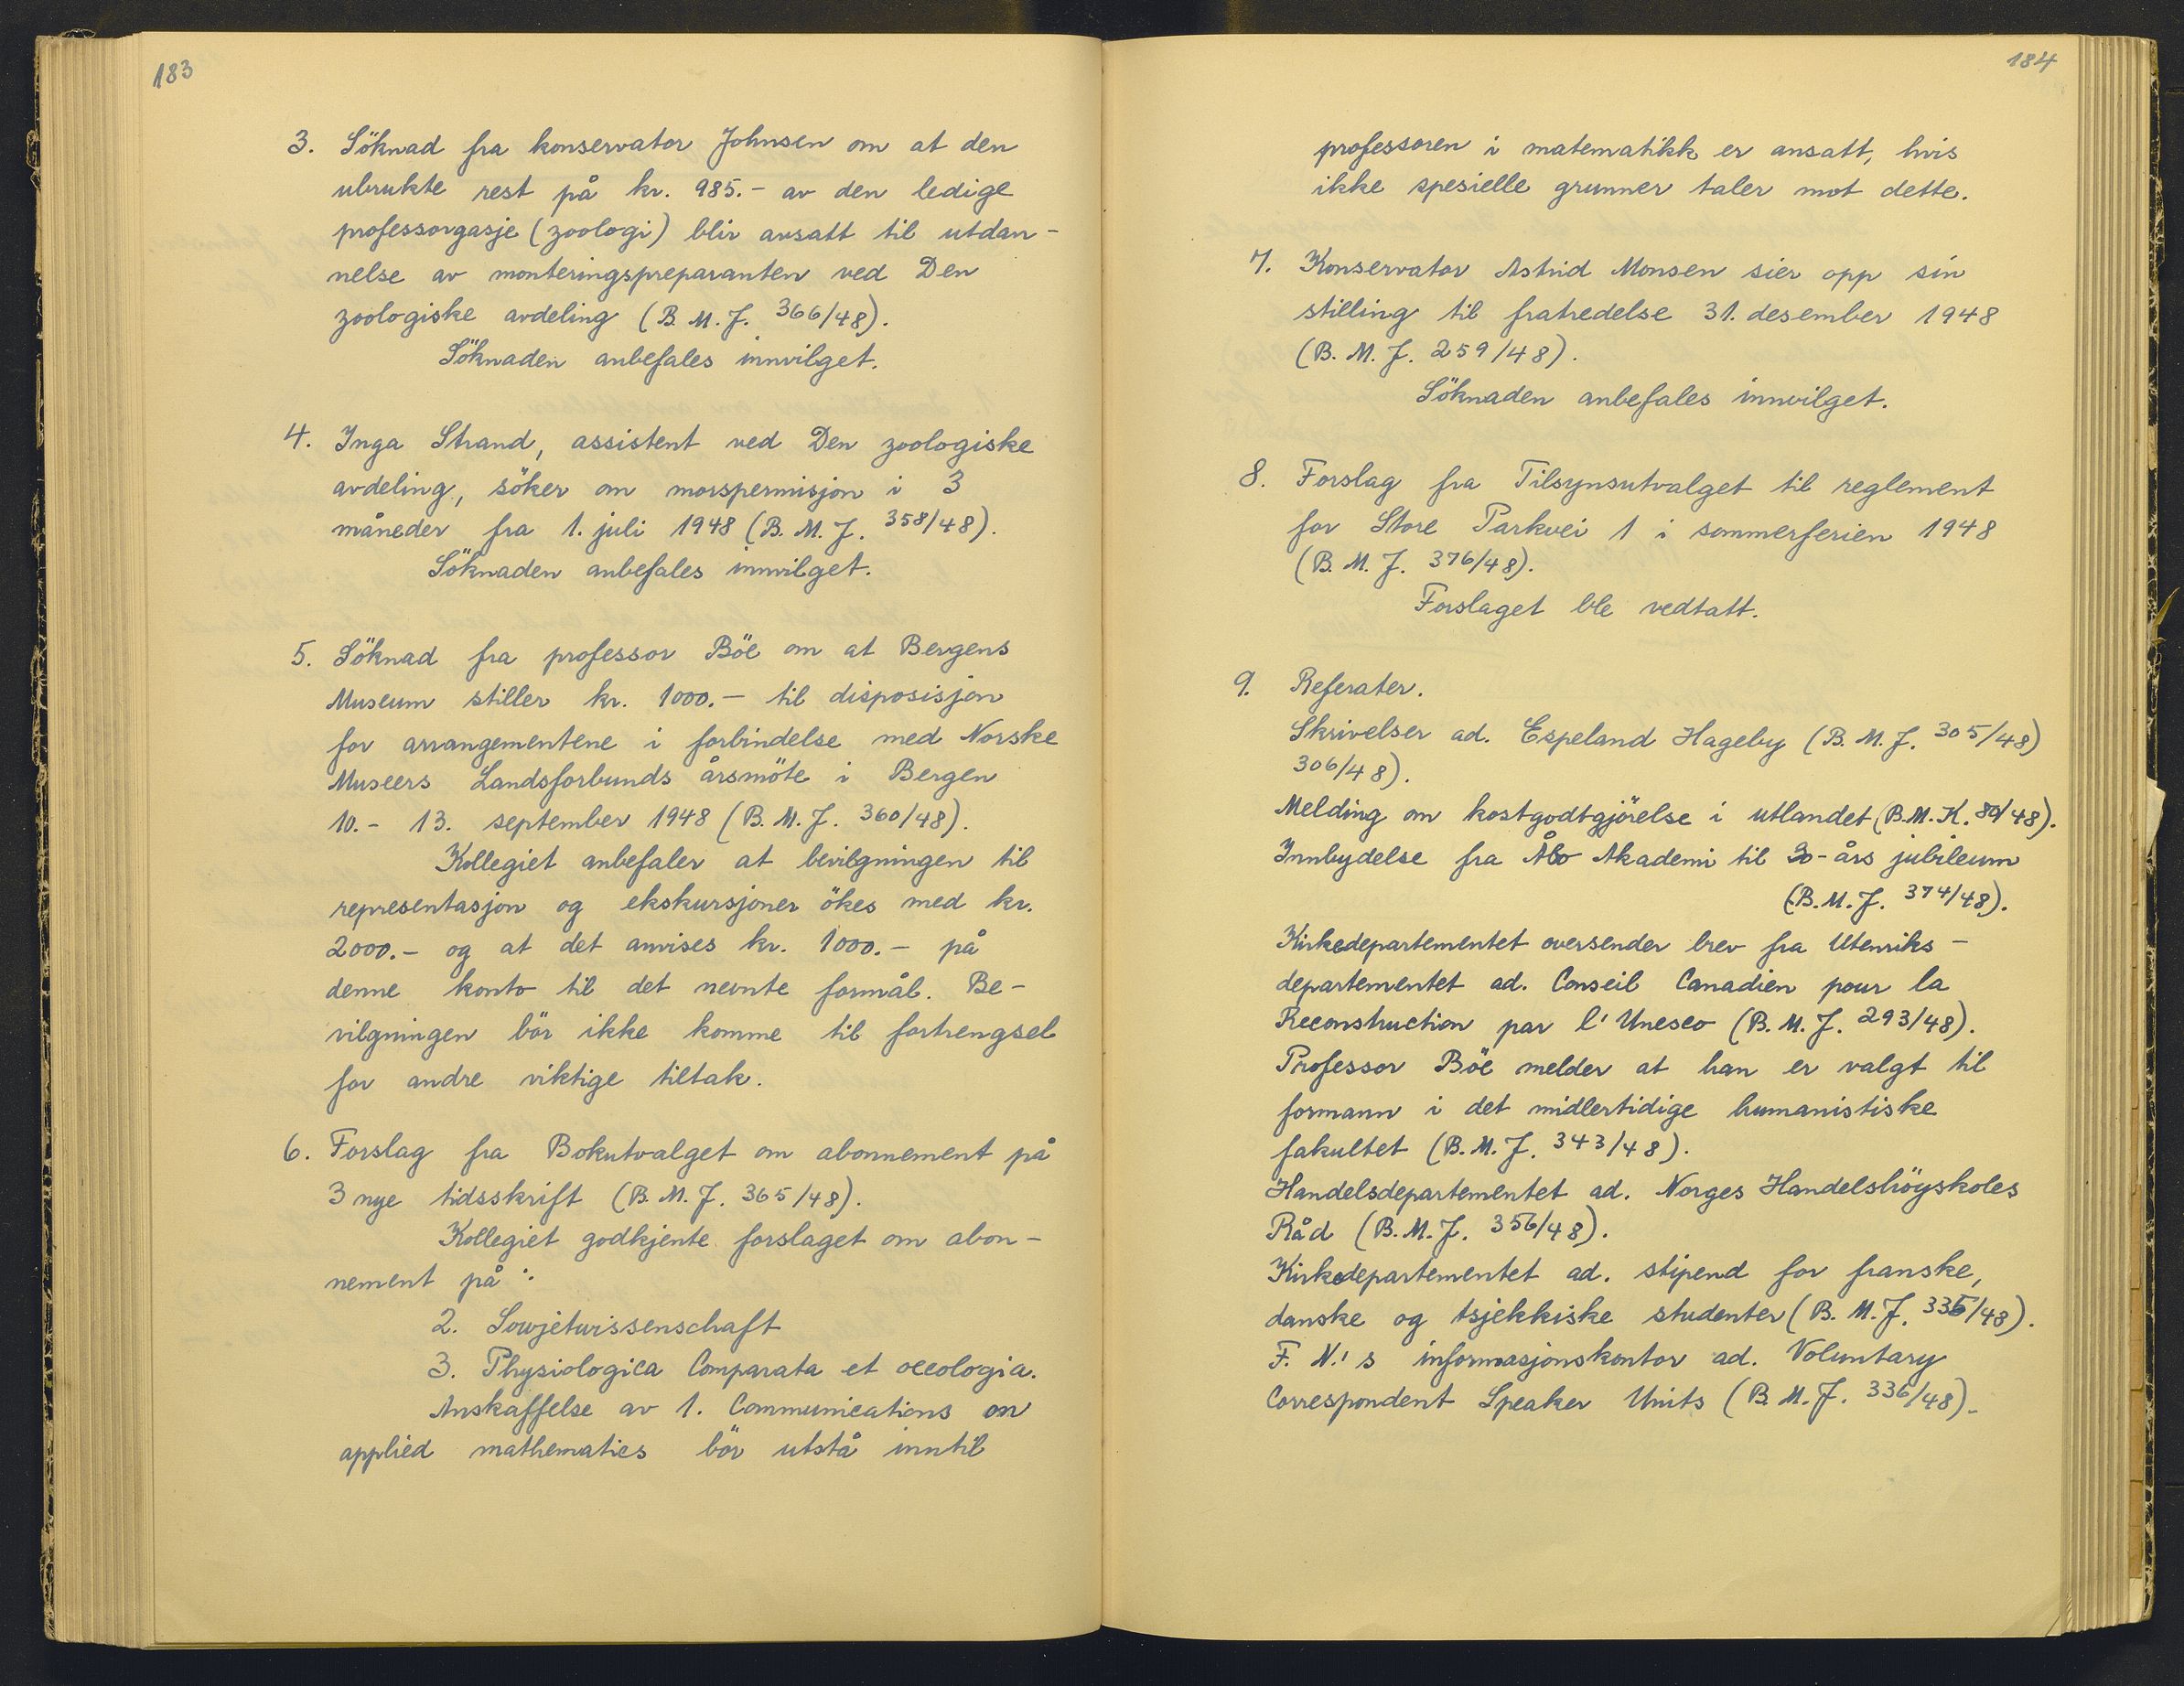 183
3. Söknad fra konservator Johnsen om at den
ubrukte rest på kr. 985.- av den ledige
professorgasje (zoologi) blir avsatt til utdan-
nelse av monteringspreparanten ved Den
zoologiske avdeling (B. M. J. 366/48).
Söknaden anbefales innvilget.
4. Inga Strand, assistent ved Den zoologiske
avdeling, söker om morspermisjon i 3
måneder fra 1. juli 1948 (B. M. J. 358/48).
Söknaden anbefales innvilget.
5. Söknad fra professor Böe om at Bergens
Museum stiller kr. 1000.- til disposisjon
for arrangementene i forbindelse med Norske
Museers Landsforbunds årsmöte i Bergen
10.- 13. september 1948 (B. M. J. 360/48).
Kollegiet anbefaler at bevilgningen til
representasjon og ekskursjoner ökes med kr.
2000.- og at det anvises kr. 1000.- på
denne konto til det nevnte formål. Be-
vilgningen bör ikke komme til fortrengsel
for andre viktige tiltak.
6. Forslag fra Bokutvalget om abonnement på
3 nye tidsskrift (B. M. J. 365/48).
Kollegiet godkjente forslaget om abon-
nement på:
2. Sowjetwissenschaft
3. Physiologica Comparata et oecologia.
Anskaffelse av 1. Communications on
applied mathematics bör utstå inntil
184
professoren i matematikk er ansatt, hvis
ikke spesielle grunner taler mot dette.
7. Konservator Astrid Monsen sier opp sin
stilling til fratredelse 31. desember 1948
(B. M. J. 259/48).
Söknaden anbefales innvilget.
8. Forslag fra Tilsynsutvalget til reglement
for Store Parkvei 1 i sommerferien 1948
(B. M. J. 376/48).
Forslaget ble vedtatt.
9. Referater.
Skrivelser ad. Espeland Hageby (B. M. J. 305/48)
306/48).
Melding om kostgodtgjörelse i utlandet (B.M.K. /48).
Innbydelse fra Åbo Akademi til 30-års jubileum
(B. M. J. 374/48).
Kirkedepartementet oversender brev fra Utenriks-
departementet ad. Conseil Canadien pour la
Reconstruction par l'Unesco (B. M. J. 293/48).
Professor Böe melder at han er valgt til
formann i det midlertidige humanistiske
fakultet (B. M. J. 343/48).
Handelsdepartementet ad. Norges Handelshöyskoles
Råd (B. M. J. 356/48).
Kirkedepartementet ad. stipend for franske,
danske og tsjekkiske studenter (B. M. J. 335/48).
F. N.'s informasjonskontor ad. Voluntary
Correspondent Speaker Units (B. M. J. 336/48).